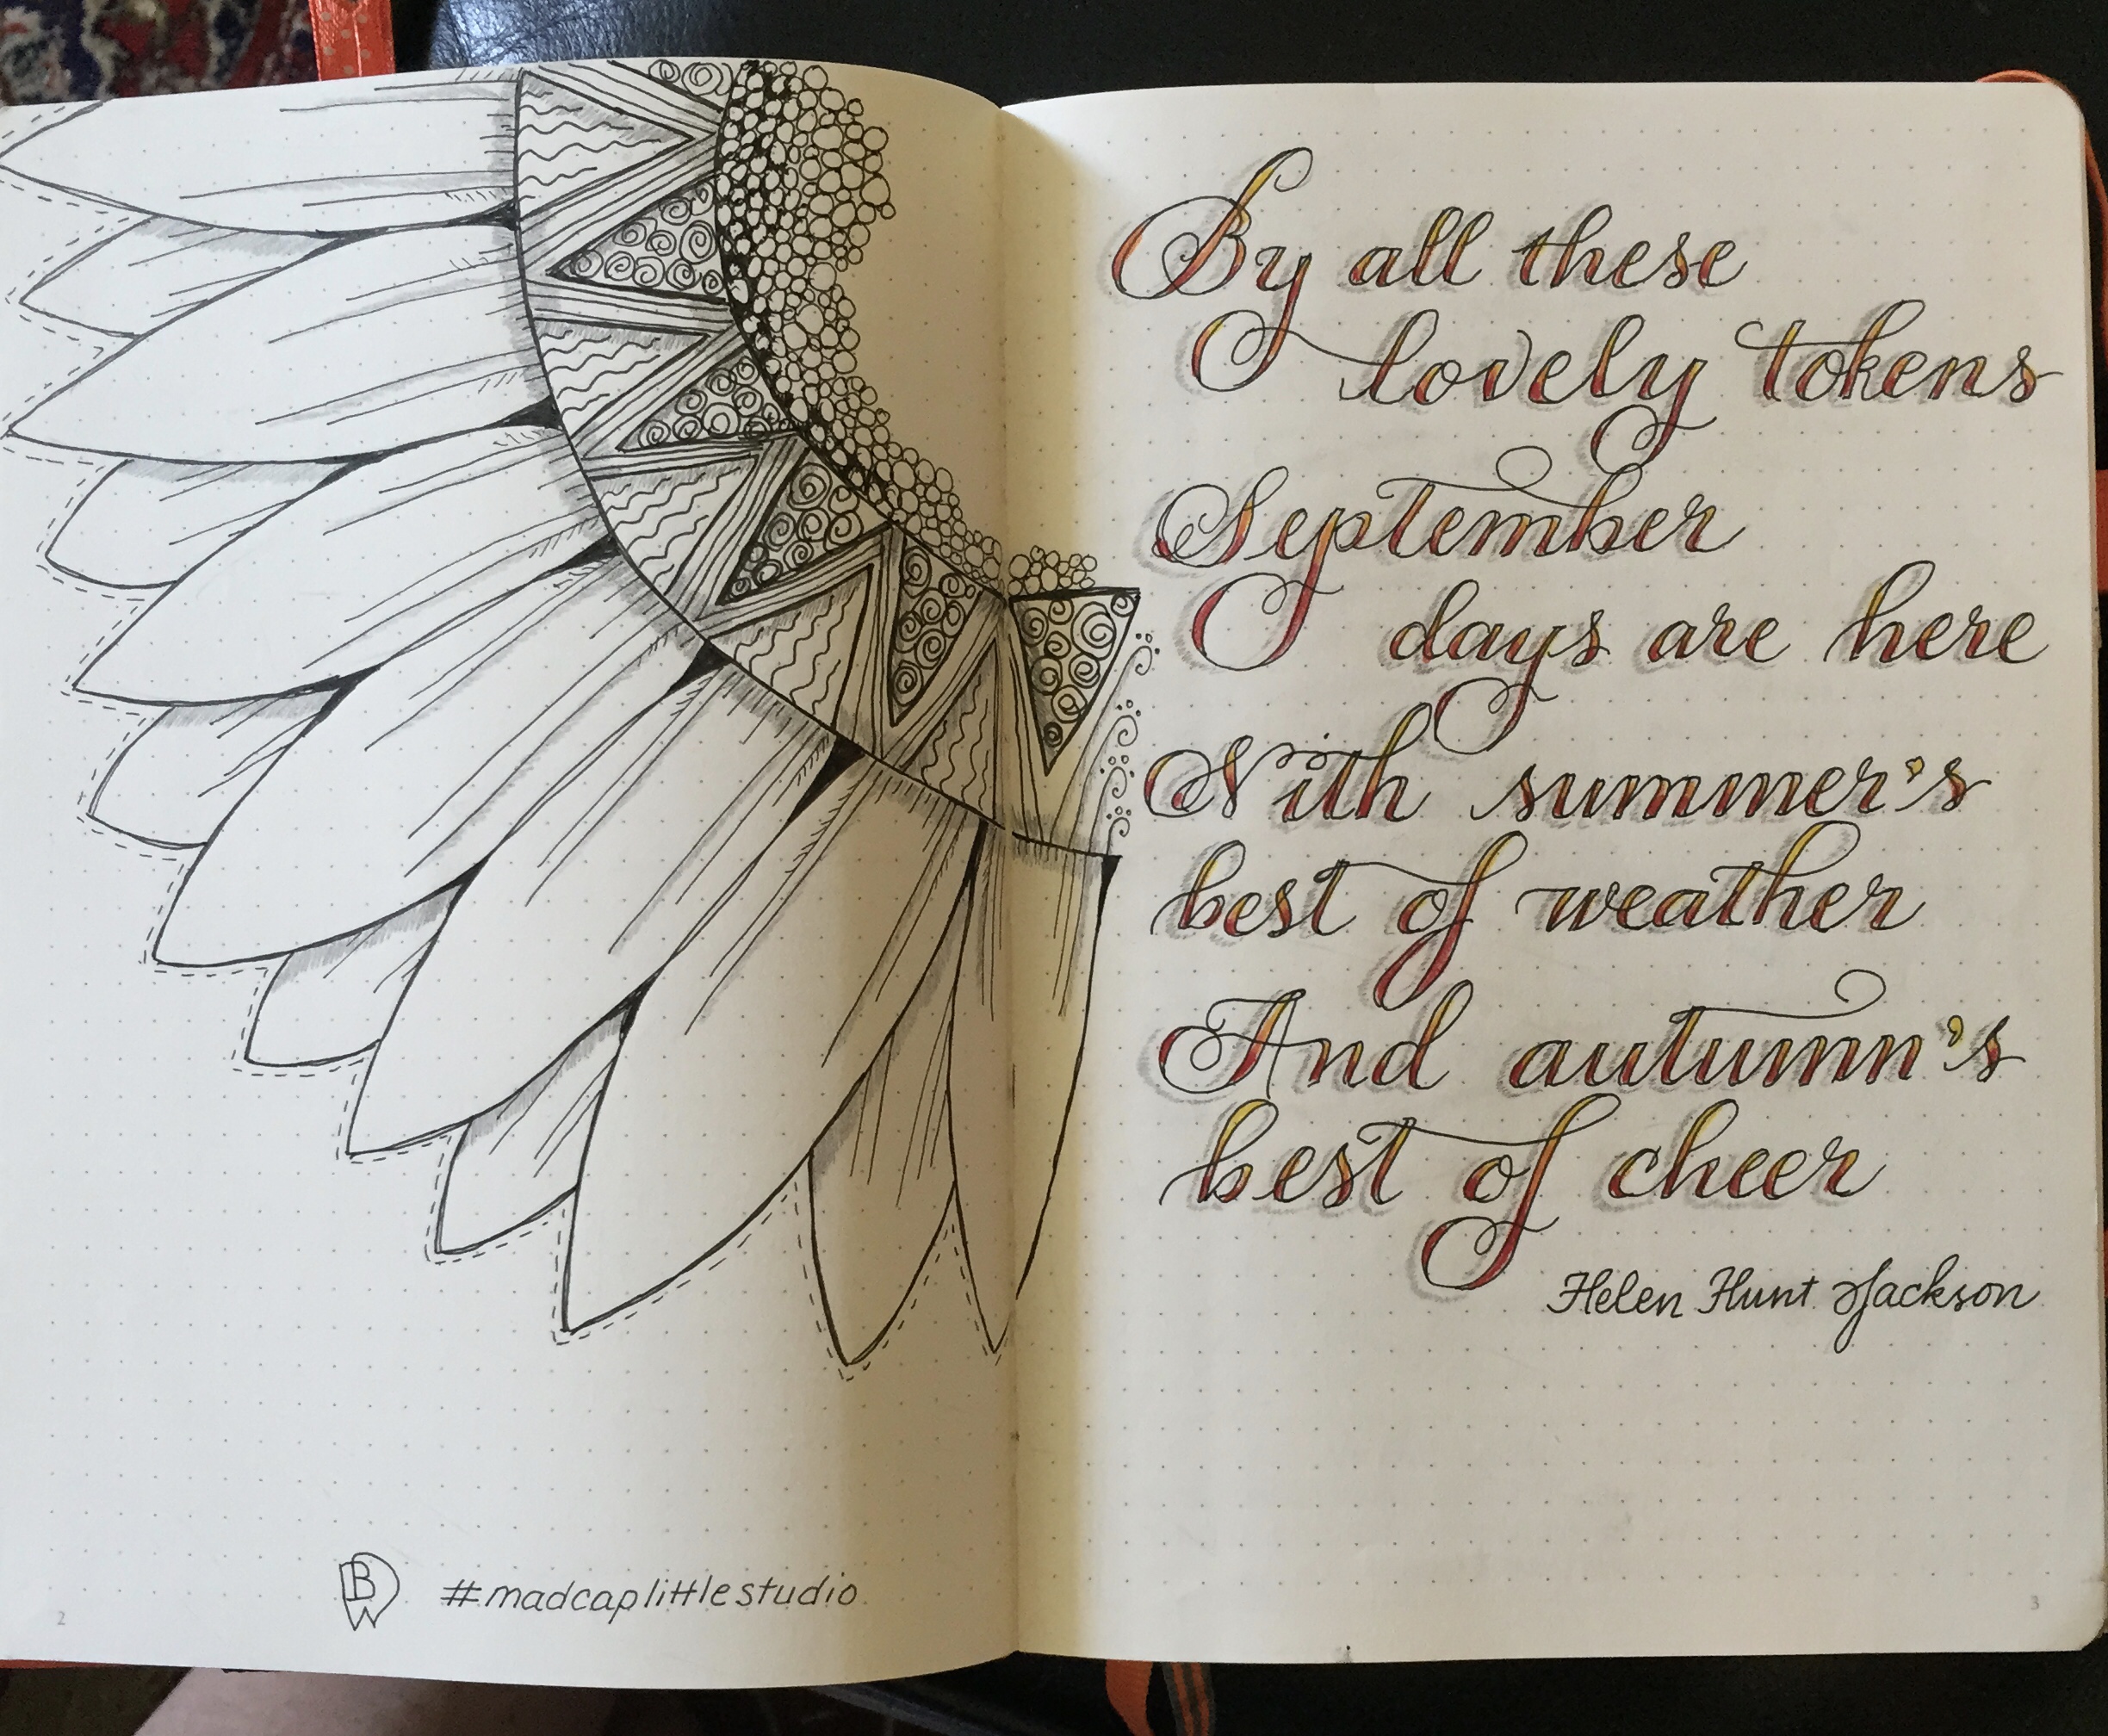 2
BW
#madcaplittlestudio
By all these
lovely tokens
September
days are here
With summer's
best of weather
And autumn's
best of cheer
Helen Hunt Jackson
3